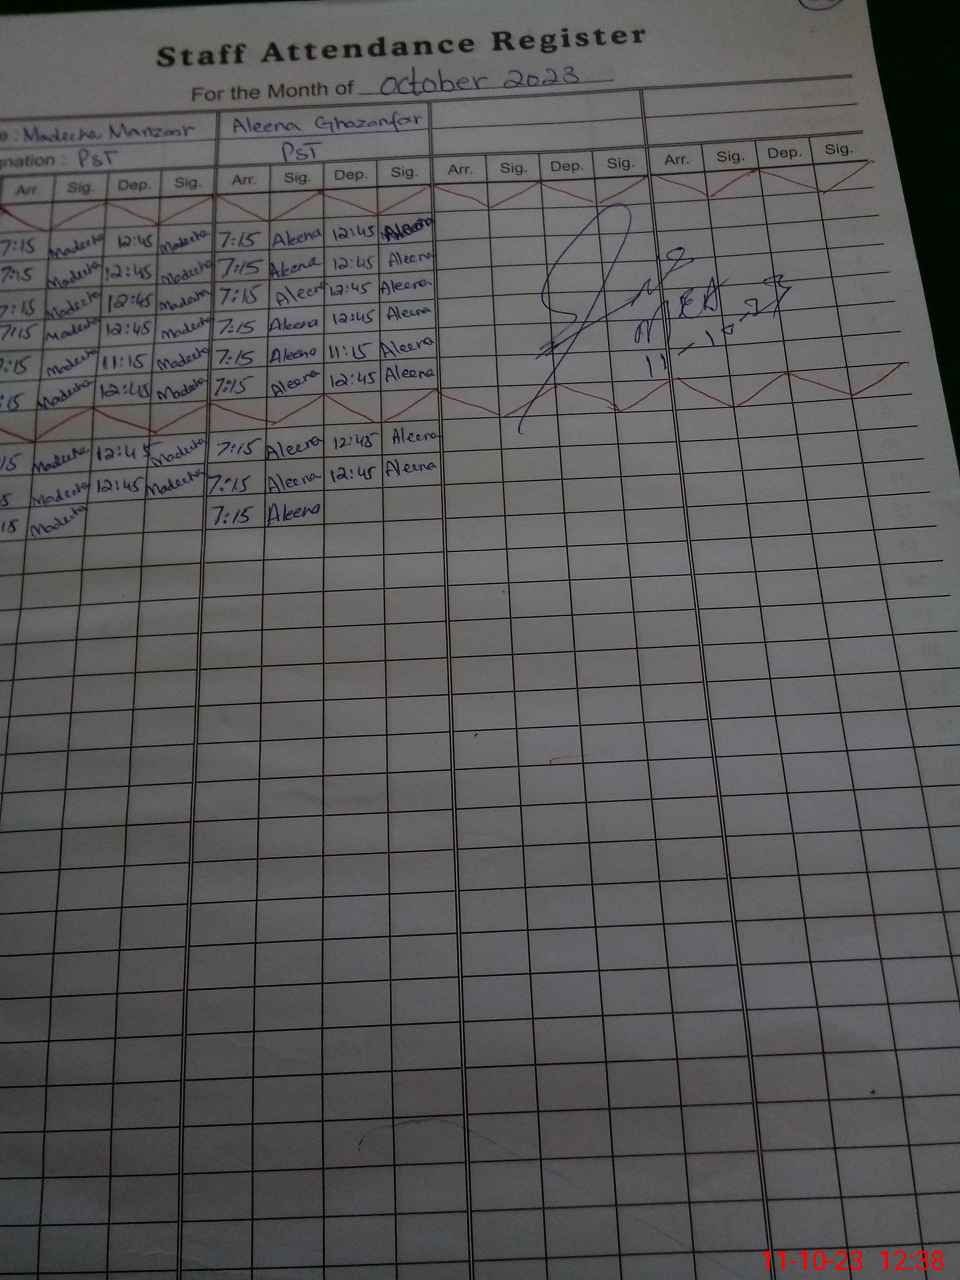 Staff Attendance Register
For the Month of October 2023
: Madeeha Manzoor Aleena Ghazanfar
gnation : PST PST
Arr. Sig. Dep. Sig. Arr. Sig. Dep. Sig. Arr. Sig. Dep. Sig. Arr. Sig. Dep. Sig.
7:15 Madeeha 12:45 Madeeha 7:15 Aleena 12:45 Aleena
7:15 Madeeha 12:45 Madeeha 7:15 Aleena 12:45 Aleena
7:15 Madeeha 12:45 Madeeha 7:15 Aleena 12:45 Aleena
7:15 Madeeha 12:45 Madeeha 7:15 Aleena 12:45 Aleena
:15 Madeeha 11:15 Madeeha 7:15 Aleena 11:15 Aleena
:15 Madeeha 12:45 Madeeha 7:15 Aleena 12:45 Aleena
15 Madeeha 12:45 Madeeha 7:15 Aleena 12:45 Aleena
5 Madeeha 12:45 Madeeha 7:15 Aleena 12:45 Aleena
15 Madeeha 7:15 Aleena
MEA
11-10-23
11-10-23 12:38